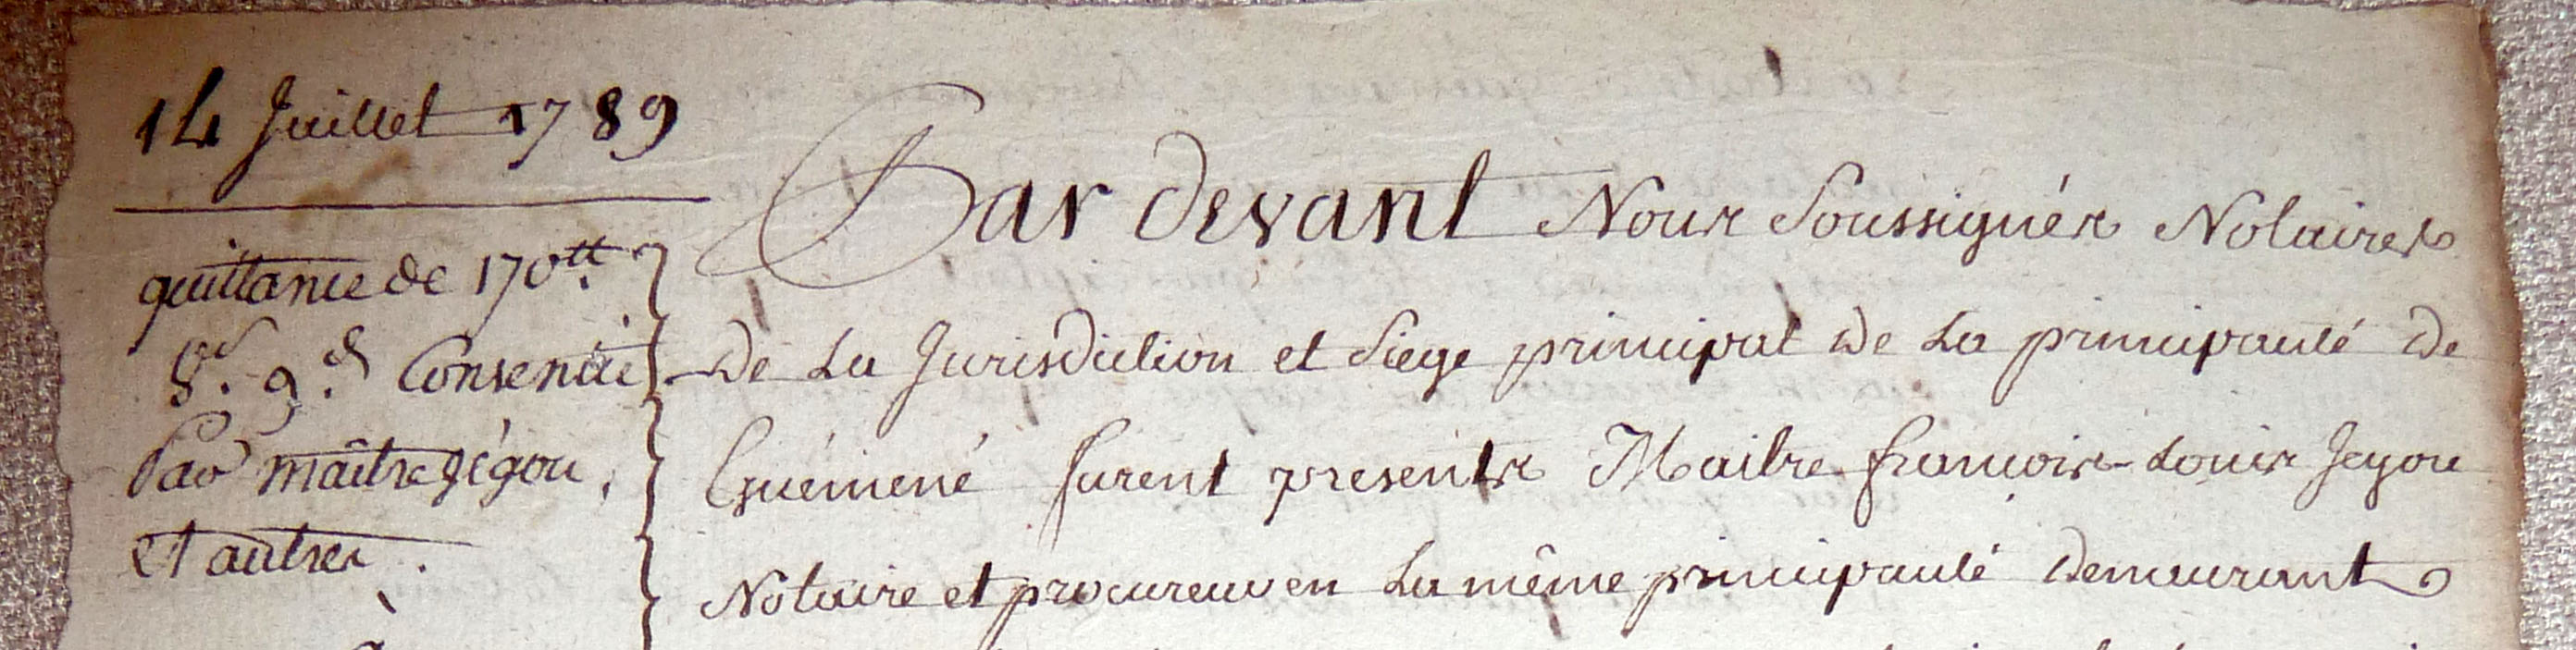 14 Juillet 1789
quittance de 170tt.
8s. 9d. Consentie
Par maître Jégou,
et autres.
Par devant Nous Soussignés Notaires
de La Jurisdiction et Siege principal de La principauté de
Guémené furent presents Maitre françois-Louis Jegou
Notaire et procureur en La même principauté demeurant